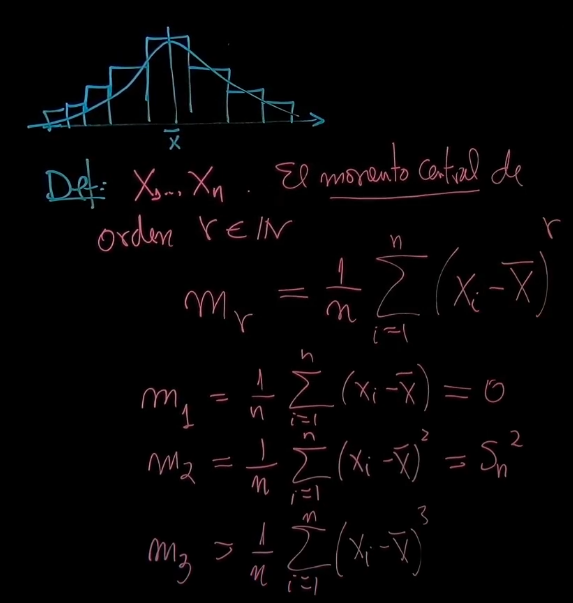 x̄
Def: X₁, ..., Xₙ . El momento central de
orden r ∈ ℕ
mᵣ = 1/n ∑ᵢ₌₁ⁿ (xᵢ - x̄)ʳ
m₁ = 1/n ∑ᵢ₌₁ⁿ (xᵢ - x̄) = 0
m₂ = 1/n ∑ᵢ₌₁ⁿ (xᵢ - x̄)² = Sₙ²
m₃ = 1/n ∑ᵢ₌₁ⁿ (xᵢ - x̄)³